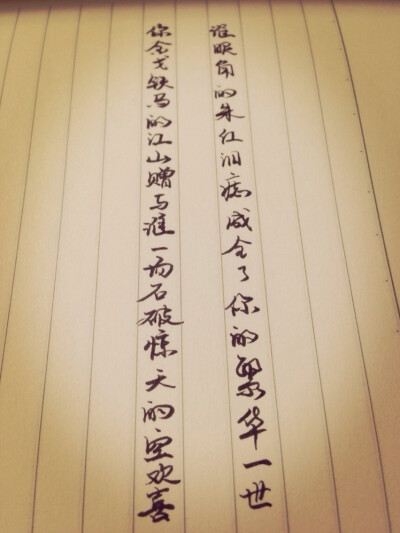 谁眼角的朱红泪痣成全了你的繁华一世
你金戈铁马的江山赠与谁一场石破惊天的空欢喜